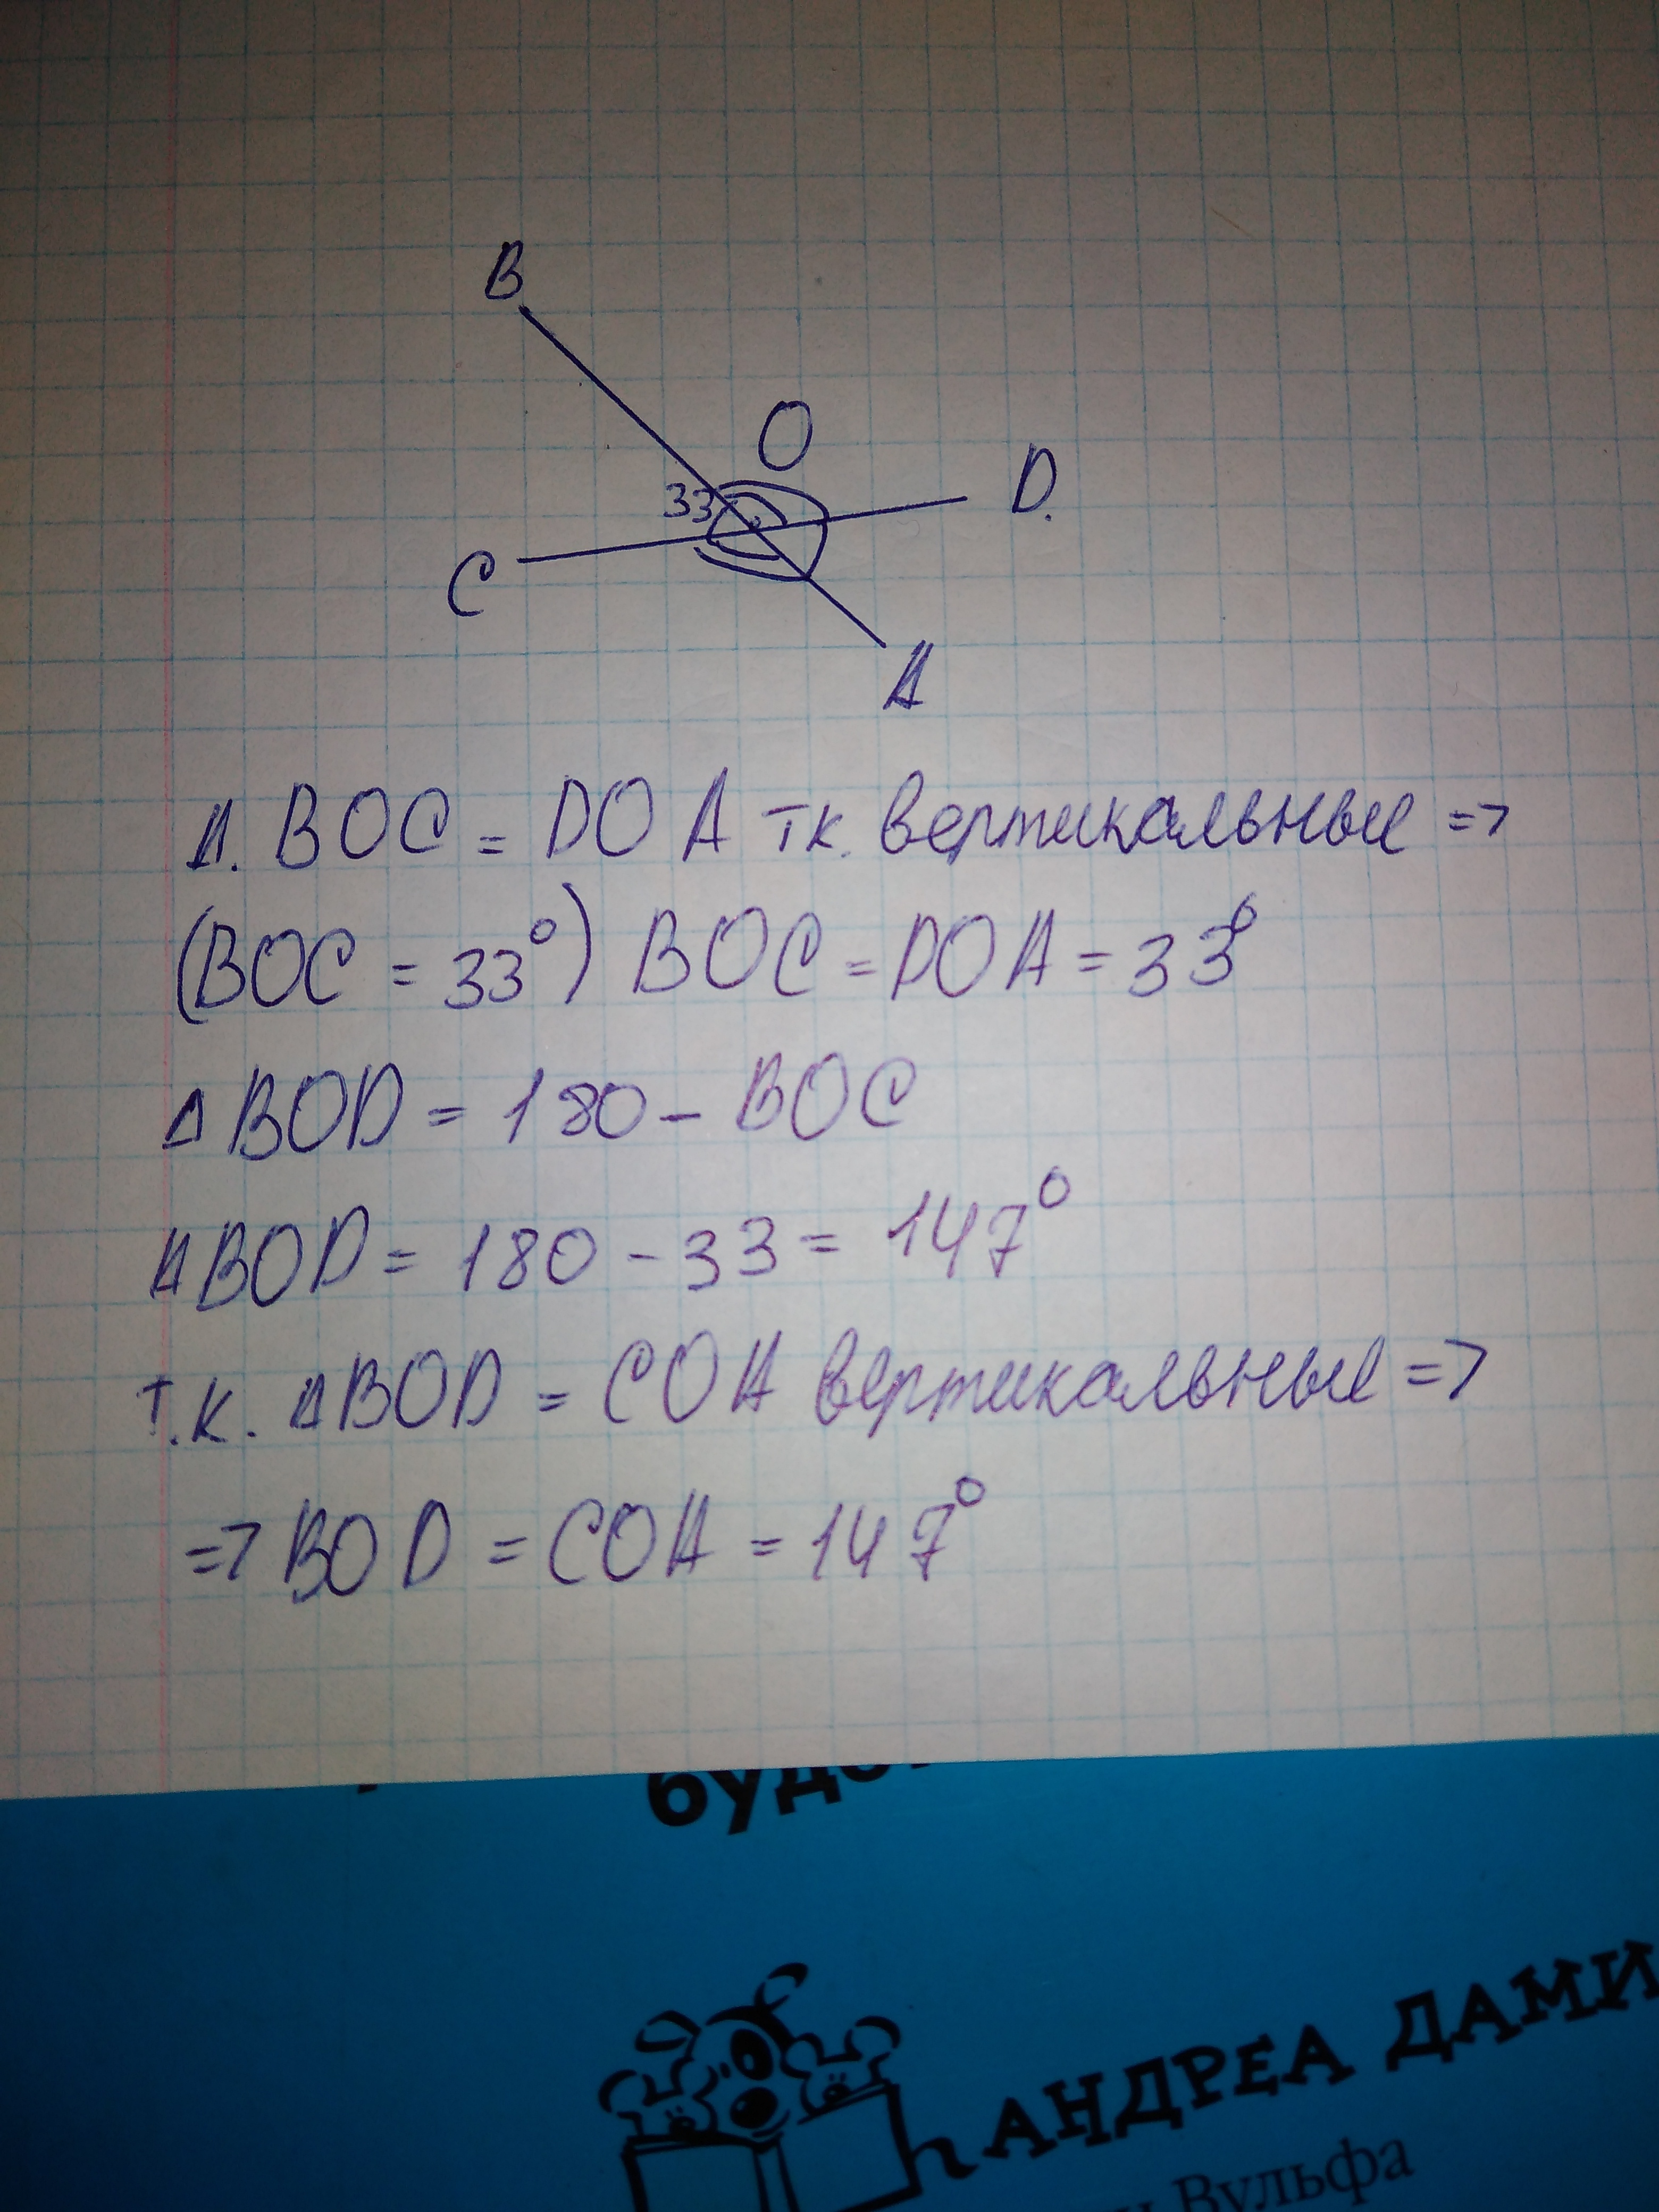 B
O
33
D.
C
A
Δ. BOC = DOA тк. вертикальные =>
(BOC = 33°) BOC = DOA = 33°
Δ BOD = 180 - BOC
Δ BOD = 180 - 33 = 147°
т.к. Δ BOD = COA вертикальные =>
=> BOD = COA = 147°
АНДРЕА ДАМИ
Вульфа